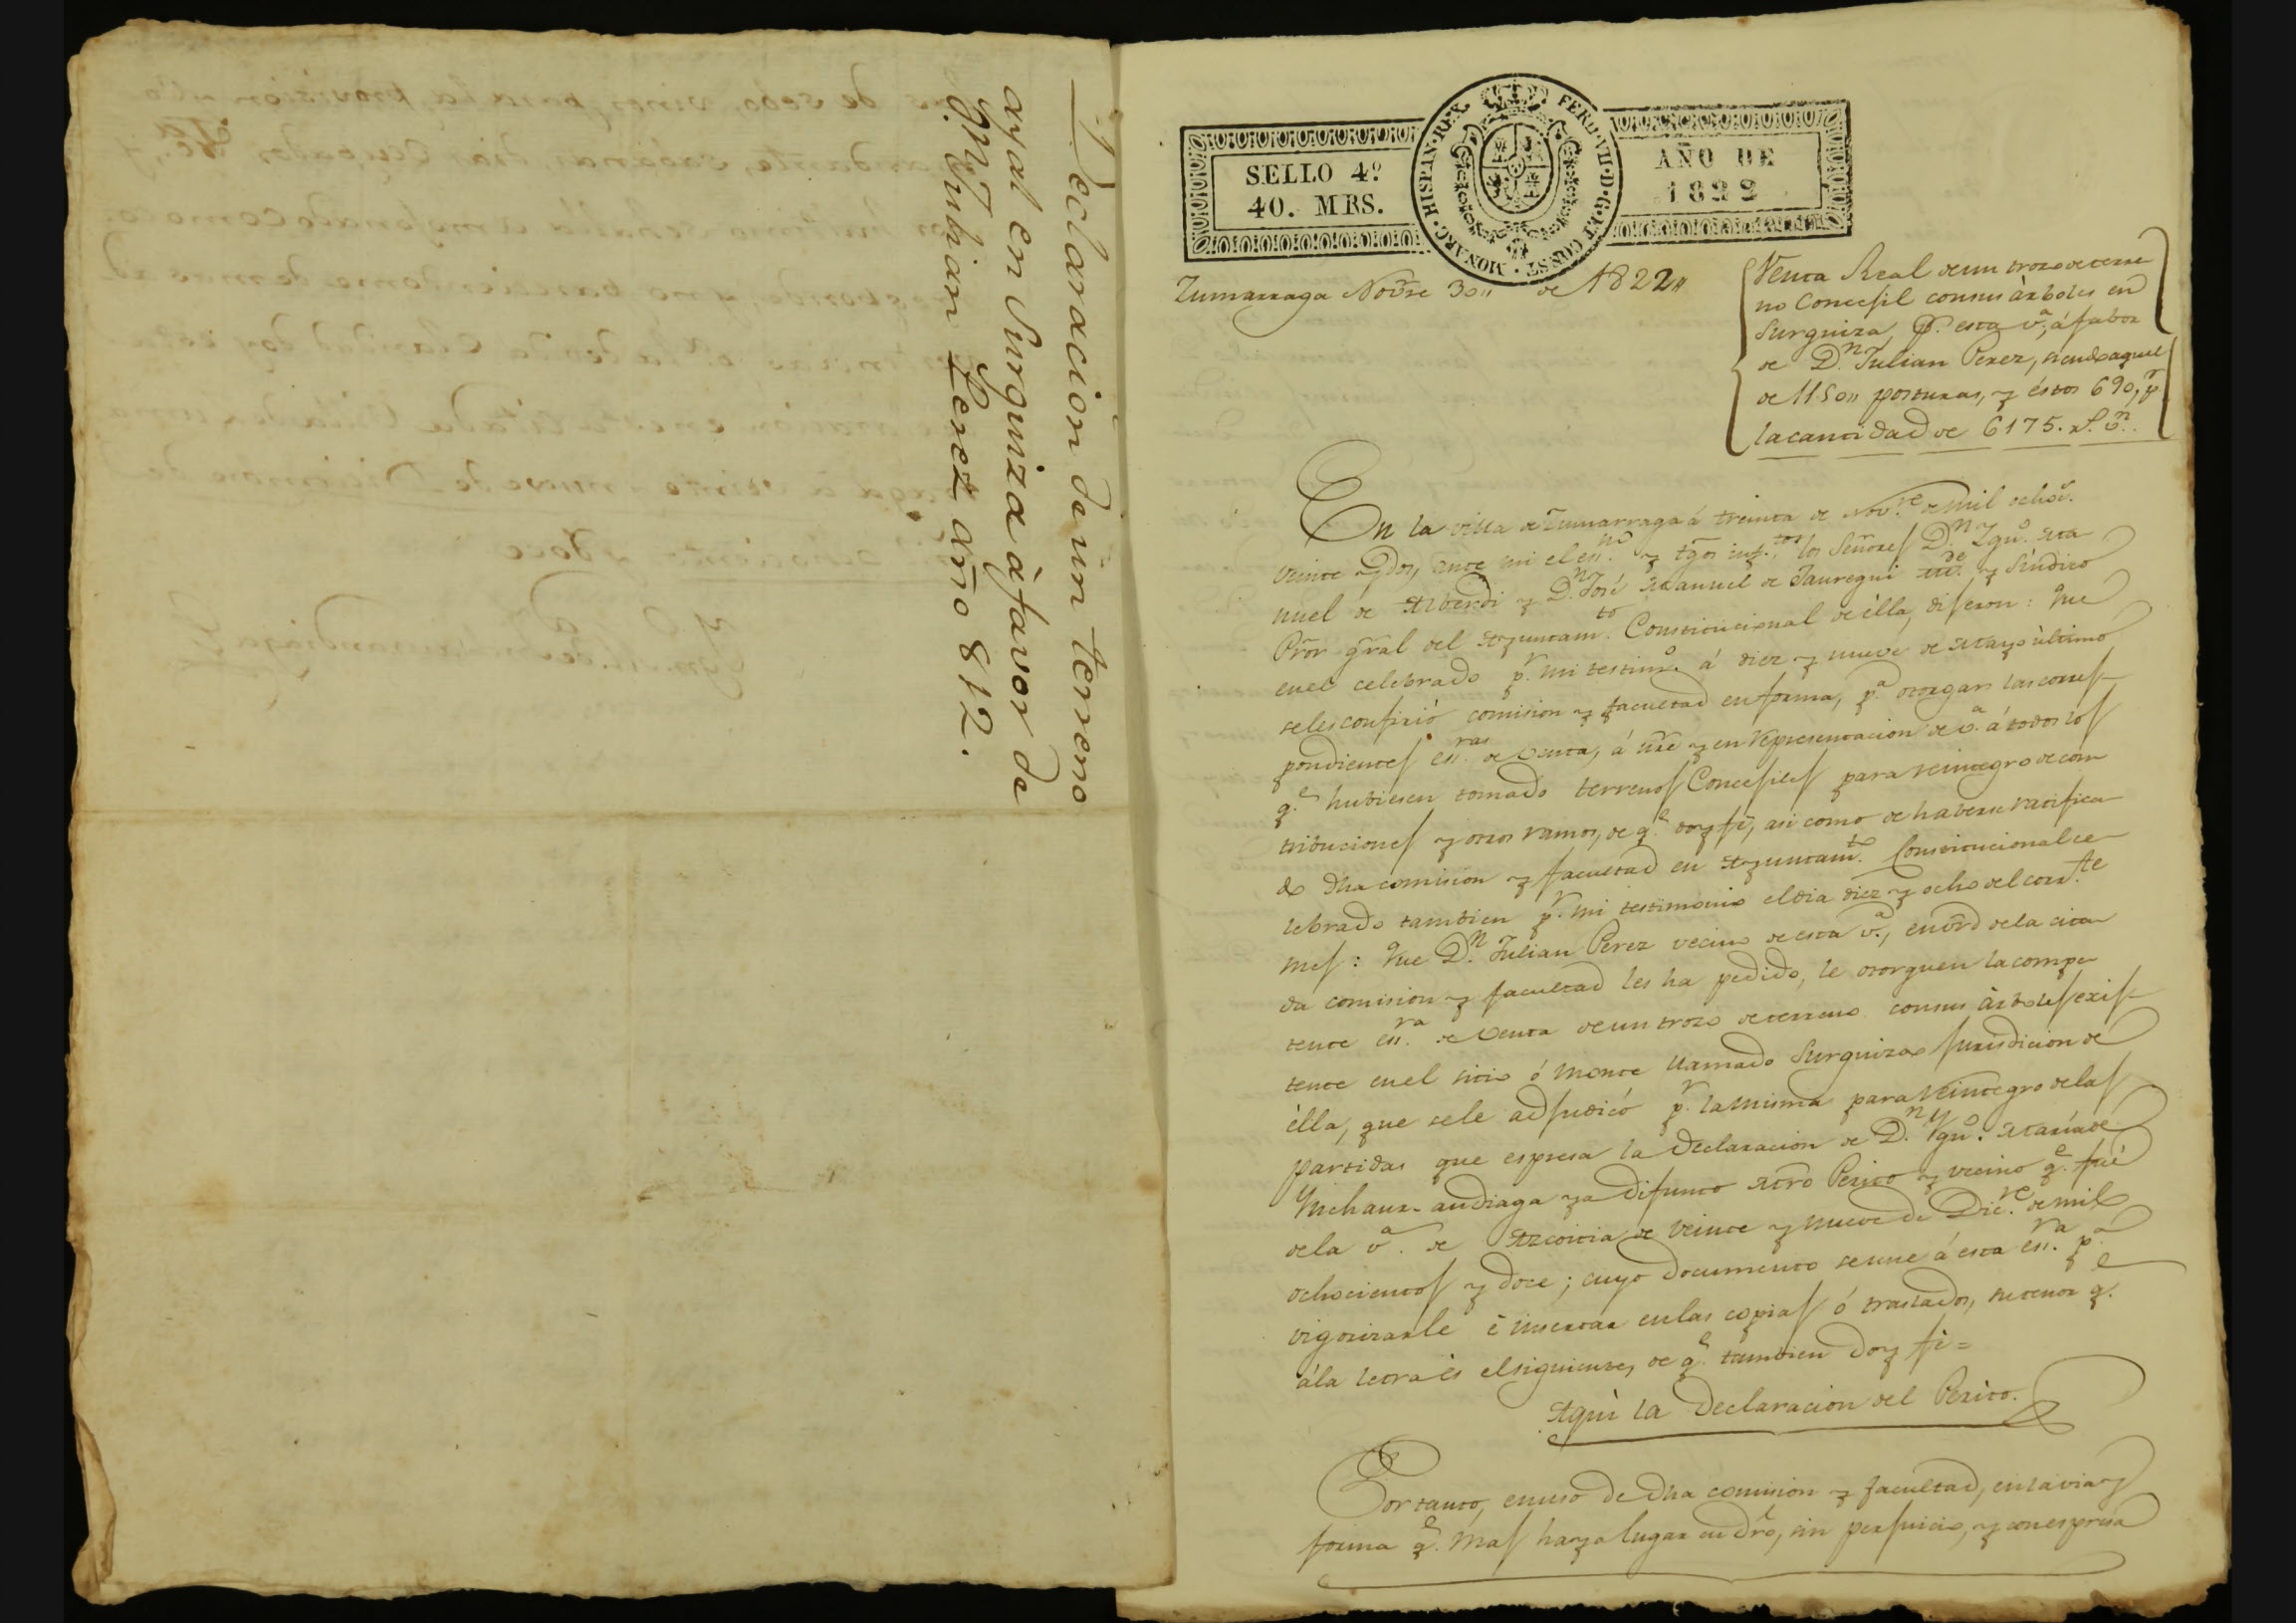 Declaracion de un terreno
arŷal en Surguiza à favor de
Dn. Julian Perez año 812.
SELLO 4º
40. MRS.
HISPAN·REX· FERD·VII·D·G·ET CONST· MONARC·
AÑO DE
1822
Zumarraga Novre 30,, de 1822,,
Venta Real de un trozo de terre
no Concejil con sus àrboles en
Surguiza, pr. esta va. á fabor
de Dn. Julian Perez, siendo aquel
de 1150,, posturas, y éstos 690, pr.
la cantidad de 6175. rs. vn.
En la villa de Zumarraga á treinta de Novre. de mil ochos.
veinte y dos, ante mi el essno. y tgos inftos. los Señores Dn. Ygno. Ma
nuel de Alberdi y Dn. José Manuel de Jauregui de y Síndico
Pror gral del Ayuntamto. Constitucional de èlla, dijeron: Que
en el celebrado pr. mi testimo. á diez y nueve de Mayo ùltimo
se les confirió comision y facultad en forma, pa. otorgar las corres
pondientes essras. de Venta, á nre y en representacion de va. á todos los
qe. hubiesen tomado terrenos Concejiles para reintegro de con
tribuciones y otros ramos, de qe. doy fé, asi como de haberse ratifica
do dha comision y facultad en Ayuntamto. Constitucional ce
lebrado tambien pr. mi testimonio el dia diez y ocho del corrte.
mes: Que Dn. Julian Perez vecino de esta va., en vrd de la cita
da comision y facultad les ha pedido, le otorguen la compe
tente essra. de Venta de un trozo de terreno con sus àrboles exis
tente en el sitio ó monte llamado Surguiza jurisdicion de
èlla, que se le adjudicó pr. la misma para reintegro de las
partidas que espresa la Declaracion de Dn. Ygno. María de
Ynchaurandiaga ya difunto Mtro Perito y vecino qe. fué
de la va. de Azcoitia de veinte y nueve de Dicre. de mil
ochocientos y doce; cuyo documento se une á esta essra. pa.
vigorizarle é insertar en las copias ó traslados, su tenor qe.
á la letra ès el siguiente, de qe. tambien doy fé =
Aquì la Declaracion del Perito.
Por tanto, en uso de dha comision y facultad, en la via y
forma qe. mas haya lugar en dro, sin perjuicio, y con espresa